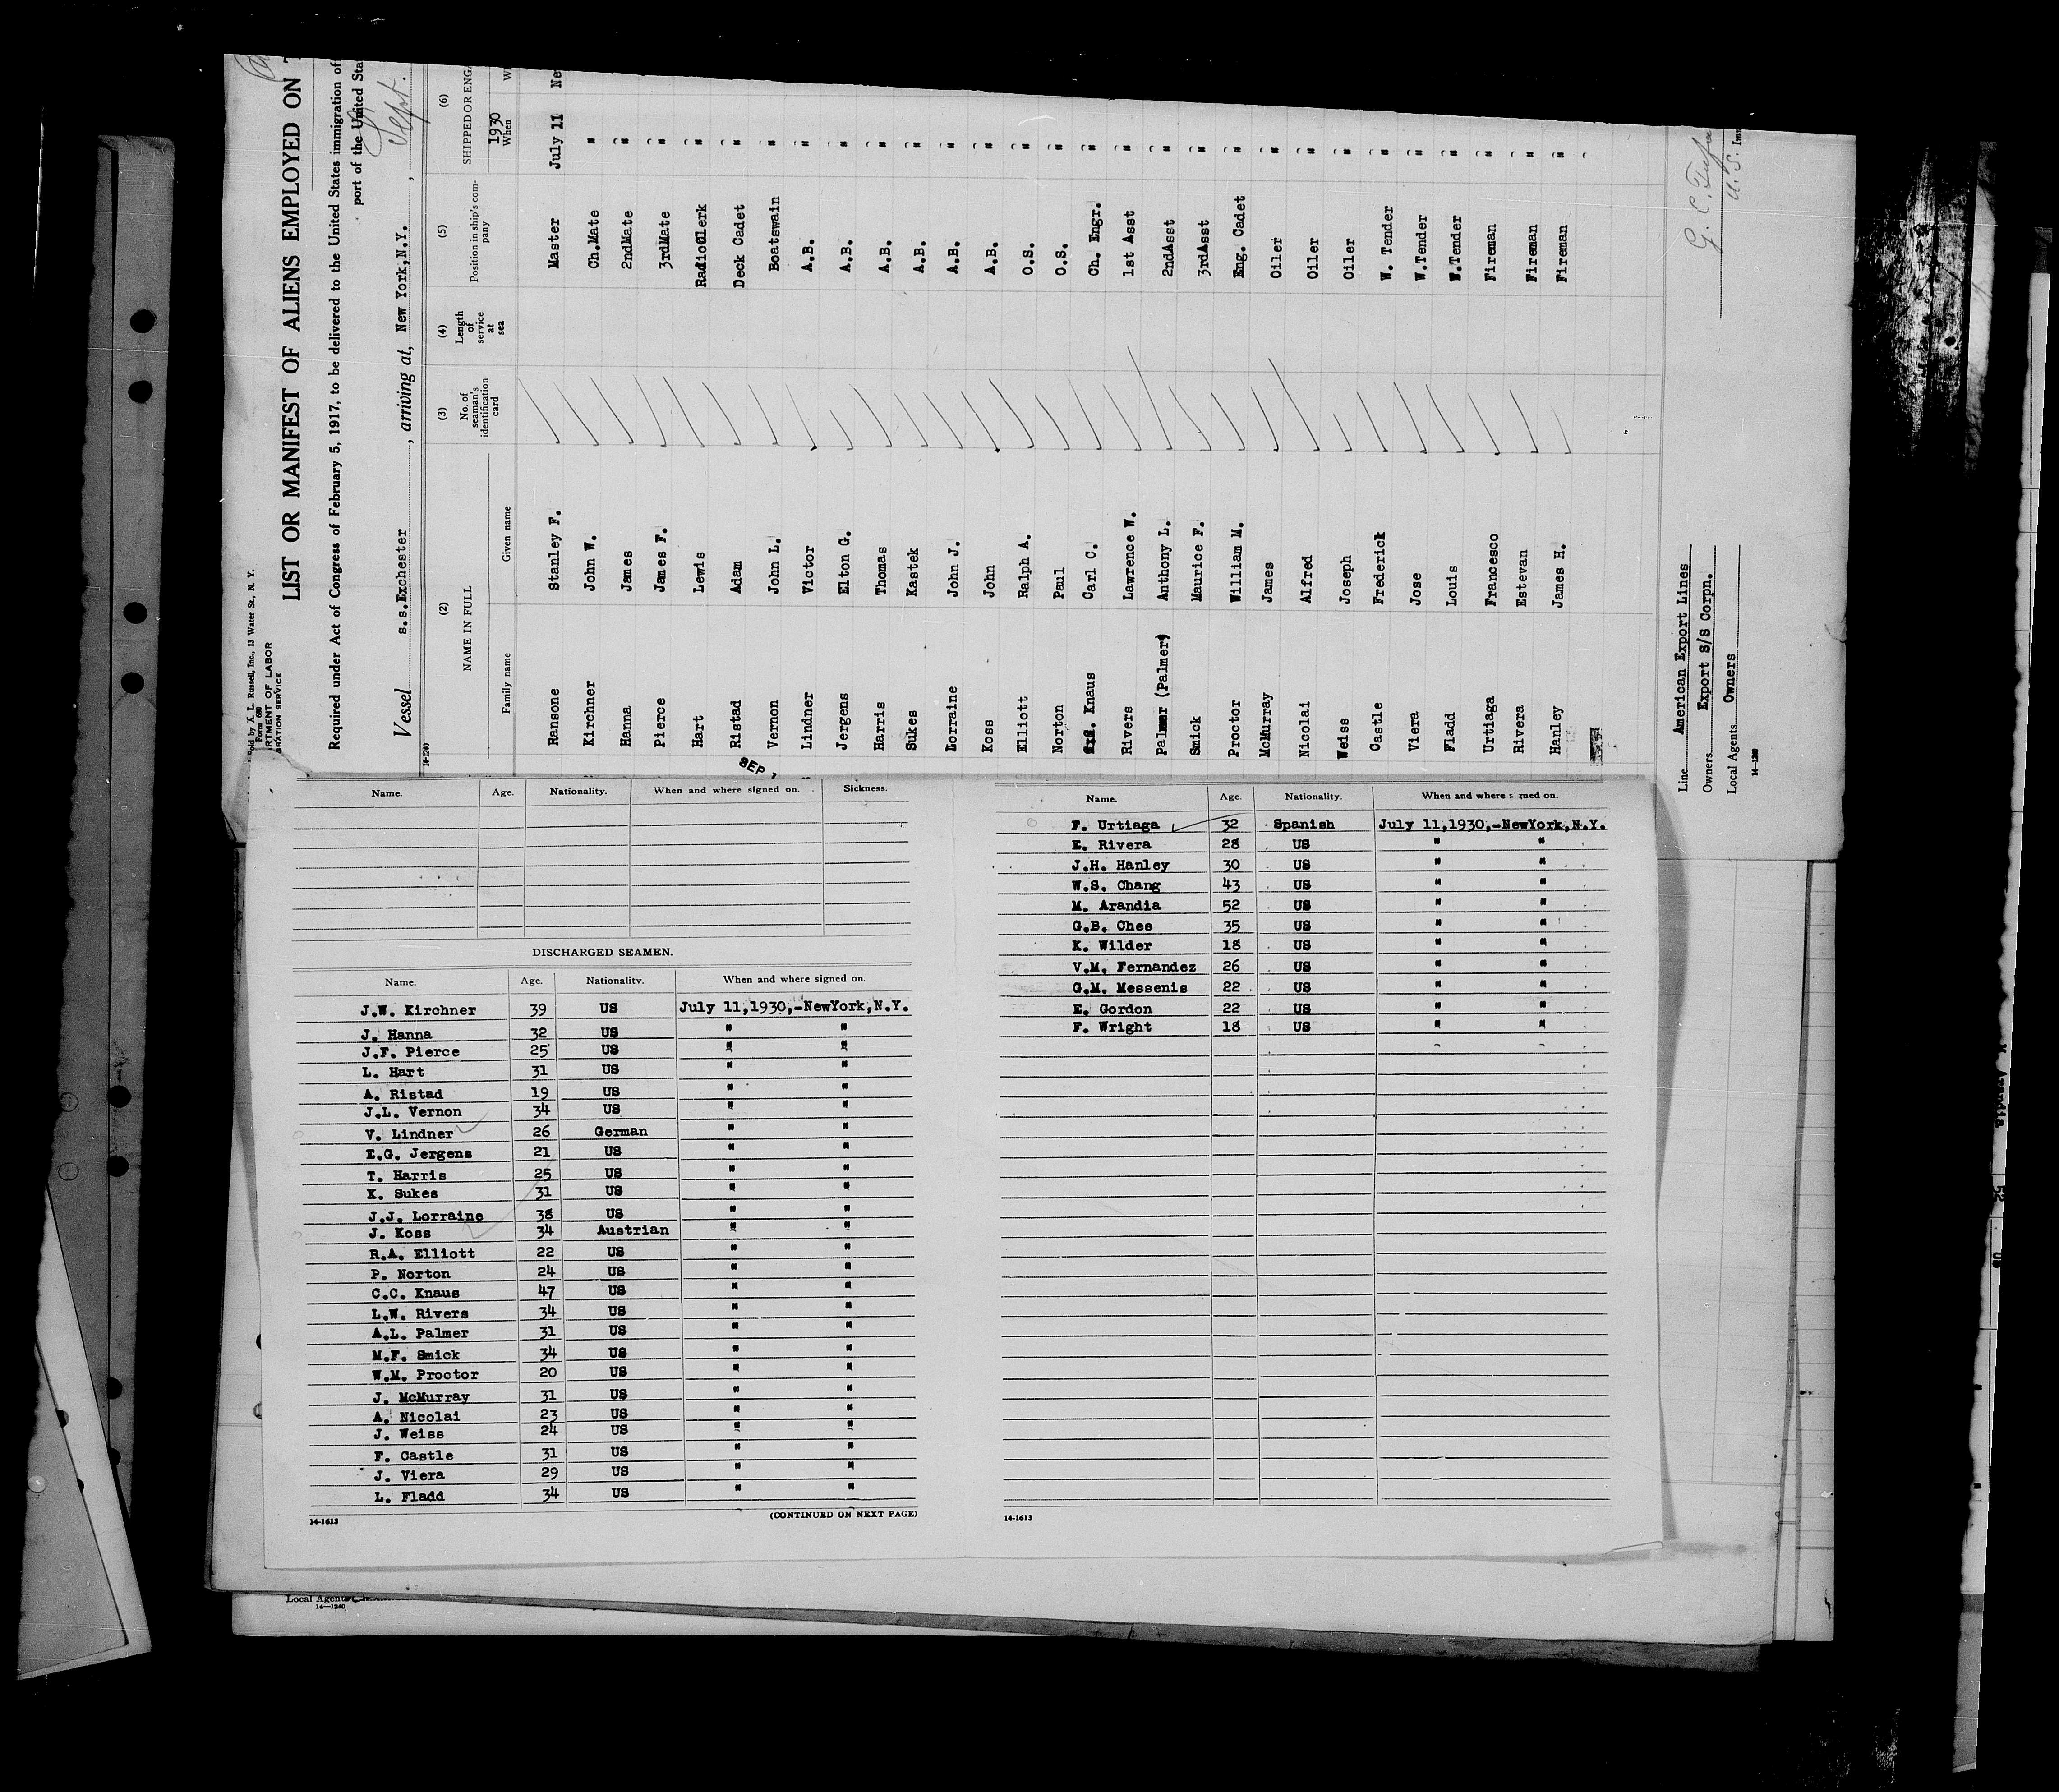 Sold by A. L. Russell, Inc., 13 Water St., N. Y.
Form 680
LIST OR MANIFEST OF ALIENS EMPLOYED ON
Required under Act of Congress of February 5, 1917, to be delivered to the United States immigration
port of the United
Vessel s.s.Exchester, arriving at, New York,N.Y., Sept.
14-1240
(2) (3) (4) (5) (6)
NAME IN FULL No. of seaman's identification card Length of service at sea Position in ship's company SHIPPED OR
Family name Given name 1930 When
Ransone Stanley F. Master July 11
Kirchner John W. Ch.Mate "
Hanna James 2ndMate "
Pierce James F. 3rdMate "
Hart Lewis RadioClerk "
Ristad Adam Deck Cadet "
Vernon John L. Boatswain "
Lindner Victor A.B. "
Jergens Elton G. A.B. "
Harris Thomas A.B. "
Sukes Kastek A.B. "
Lorraine John J. A.B. "
Koss John A.B. "
Elliott Ralph A. O.S. "
Norton Paul O.S. "
Knaus Carl C. Ch. Engr. "
Rivers Lawrence W. 1st Asst "
Palmer (Palmer) Anthony L. 2ndAsst "
Smick Maurice F. 3rdAsst "
Proctor William M. Eng. Cadet "
McMurray James Oiler "
Nicolai Alfred Oiler "
Weiss Joseph Oiler "
Castle Frederick W. Tender "
Viera Jose W.Tender "
Fladd Louis W.Tender "
Urtiaga Francesco Fireman "
Rivera Estevan Fireman "
Hanley James H. Fireman "
Line American Export Lines
Owners Export S/S Corpn.
Local Agents Owners
14-1240
SEP
Name. Age. Nationality. When and where signed on. Sickness.
DISCHARGED SEAMEN.
Name. Age. Nationality. When and where signed on.
J.W. Kirchner 39 US July 11,1930,-NewYork,N.Y.
J. Hanna 32 US " "
J.F. Pierce 25 US " "
L. Hart 31 US " "
A. Ristad 19 US " "
J.L. Vernon 34 US " "
V. Lindner 26 German " "
E.G. Jergens 21 US " "
T. Harris 25 US " "
K. Sukes 31 US " "
J.J. Lorraine 38 US " "
J. Koss 34 Austrian " "
R.A. Elliott 22 US " "
P. Norton 24 US " "
C.C. Knaus 47 US " "
L.W. Rivers 34 US " "
A.L. Palmer 31 US " "
M.F. Smick 34 US " "
W.M. Proctor 20 US " "
J. McMurray 31 US " "
A. Nicolai 23 US " "
J. Weiss 24 US " "
F. Castle 31 US " "
J. Viera 29 US " "
L. Fladd 34 US " "
14-1613 (CONTINUED ON NEXT PAGE)
Name. Age. Nationality. When and where signed on.
F. Urtiaga 32 Spanish July 11,1930,-NewYork,N.Y.
E. Rivera 28 US " "
J.H. Hanley 30 US " "
W.S. Chang 43 US " "
M. Arandia 52 US " "
G.B. Chee 35 US " "
K. Wilder 18 US " "
V.M. Fernandez 26 US " "
G.M. Messenis 22 US " "
E. Gordon 22 US " "
F. Wright 18 US " "
14-1613
Local Agents
14-1240